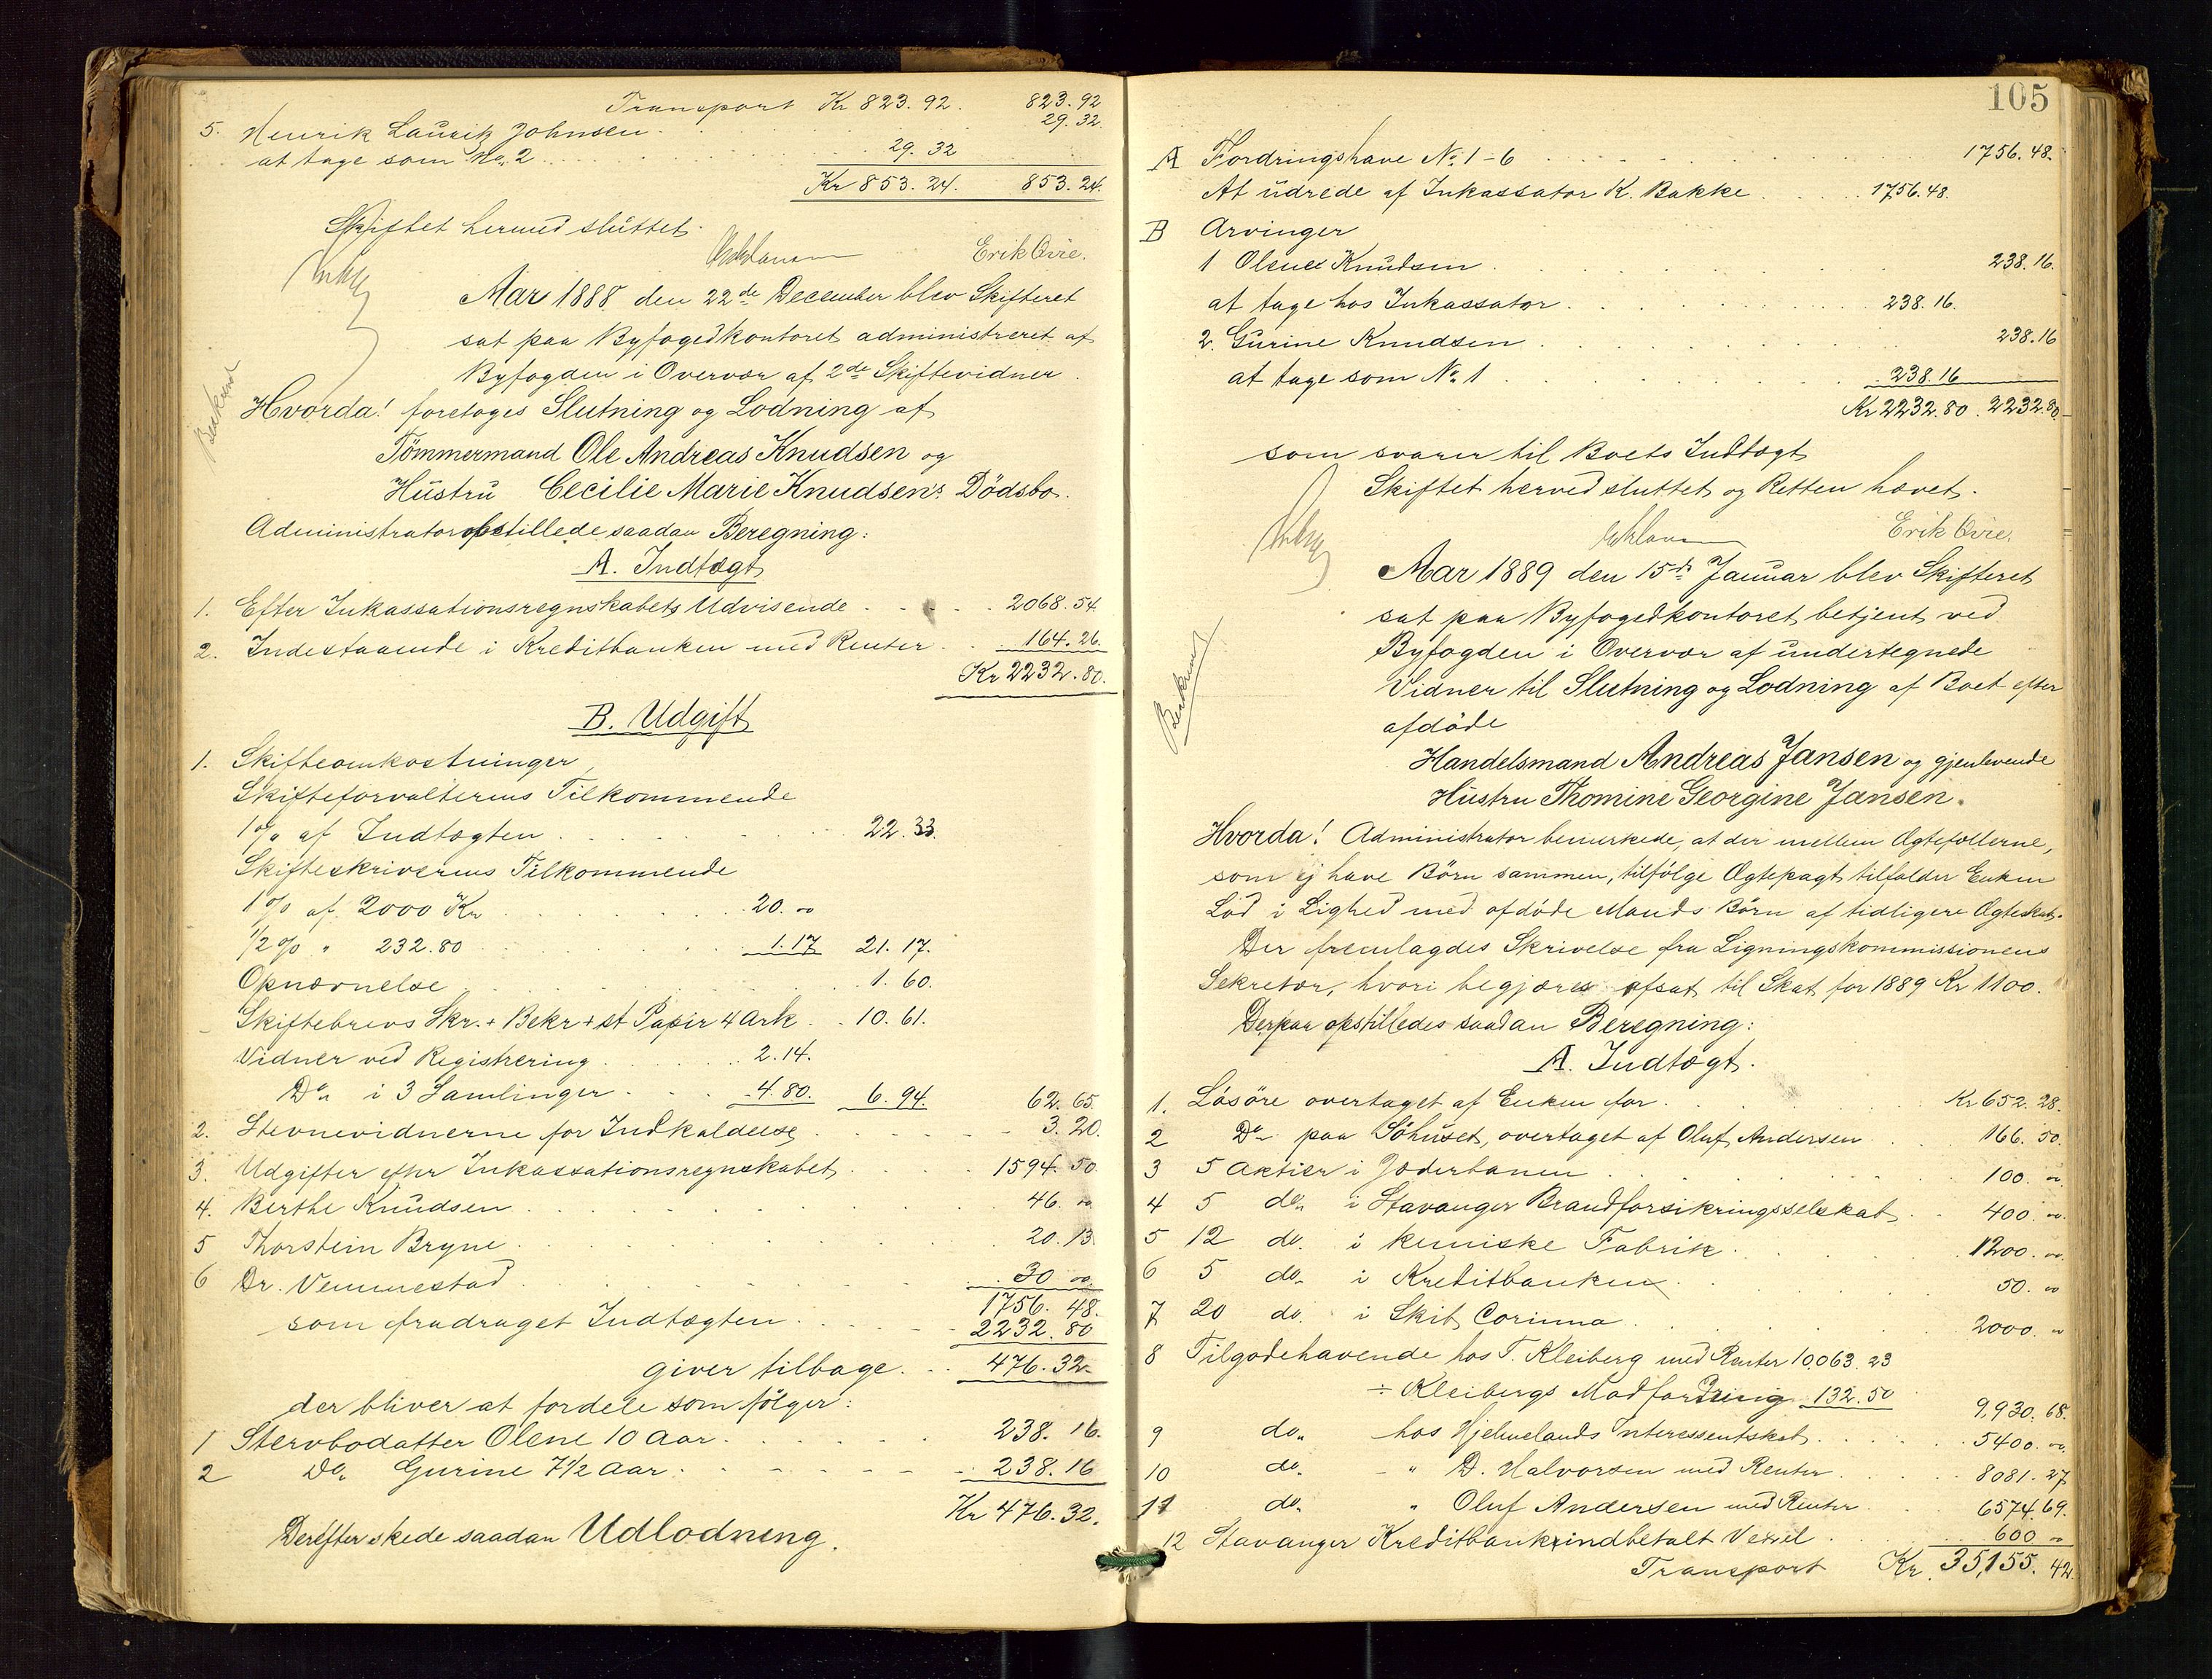 Transport Kr 823.92. 823.92
5. Henrik Lauritz Johnsen 29.32.
at tage som No. 2 29.32
Kr 853.24. 853.24.
Skiftet hermed sluttet.
Erik Øvre.
Aar 1888 den 22de December blev Skifteret
sat paa Byfogedkontoret administreret af
Byfogden i Overvær af 2de Skiftevidner.
Hvorda! foretoges Slutning og Lodning af
Tömmermand Ole Andreas Knudsen og
Hustru Cecilie Marie Knudsen's Dödsbo.
Administrator opstillede saadan Beregning:
A. Indtægt
1. Efter Inkassationsregnskabets Udvisende 2068.54.
2. Indestaaende i Kreditbanken med Renter 164.26.
Kr 2232.80.
B. Udgift
1. Skifteomkostninger
Skifteforvalterens Tilkommende
1% af Indtægten 22.33.
Skifteskriverens Tilkommende
1% af 2000 Kr 20.00
1/2% " 232.80 1.17 21.17.
Opnævnelse 1.60.
Skiftebrevs Skr. + Bekr + st Papir 4 Ark 10.61.
Vidner ved Registrering 2.14.
Do. i 3 Samlinger 4.80. 6.94. 62.65.
2. Stevnevidnerne for Indkaldelse 3.20.
3. Udgifter efter Inkassationsregnskabet 1594.50.
4. Berthe Knudsen 46.00
5 Thorstein Bryne 20.13.
6 Dr. Vemmestad 30 00.
1756.48.
som fradraget Indtægten 2232.80
giver tilbage 476.32
der bliver at fordele som fölger:
1 Stervbodatter Olene 10 Aar 238.16.
2 Do. Gurine 7 1/2 Aar 238.16
Kr 476.32.
Derefter skede saadan Udlodning.
105
A Fordringshave No. 1-6 1756.48.
At udrede af Inkassator K. Bakke 1756.48.
B Arvinger
1 Olene Knudsen 238.16.
at tage hos Inkassator 238.16.
2. Gurine Knudsen 238.16
at tage som No. 1 238.16
Kr 2232.80. 2232.80
som svarer til Boets Indtægt
Skiftet herved sluttet og Retten hævet.
Erik Øvre.
Aar 1889 den 15de Januar blev Skifteret
sat paa Byfogedkontoret betjent ved
Byfogden i Overvær af undertegnede
Vidner til Slutning og Lodning af Boet efter
afdöde
Handelsmand Andreas Jansen og gjenlevende
Hustru Thomine Georgine Jansen.
Hvorda! Administrator bemerkede, at der mellem Ægtefællerne,
som ej have Börn sammen, tilfölge Ægtepagt tilfalder Enken
Lod i Lighed med afdöde Mands Börn af tidligere Ægteskab.
Der fremlagdes Skrivelse fra Ligningskommissionens
Sekretær, hvori begjæres afsat til Skat for 1889 Kr 1100.
Derpaa opstilledes saadan Beregning:
A. Indtægt.
1. Lösöre overtaget af Enken for Kr 652.28.
2 Do. paa Söhuset, overtaget af Oluf Andersen 166.50.
3 5 Aktier i Jæderbanen 100.00
4 5 do. i Stavanger Brandforsikringsselskab 400.00.
5 12 do. i kemiske Fabrik 1200.00
6 5 do. i Kreditbanken 50.00
7 20 do. i Skib Corinna 2000.00
8 Tilgodehavende hos T. Kleiberg med Renter 10,063.23
÷ Kleibergs Modfordring 132.50 9,930.68.
9 do. hos Hjelmelands Interessentskab 5400.00.
10 do. " D. Halvorsen med Renter 8081.27
11 do. " Oluf Andersen med Renter 6574.69.
12 Stavanger Kreditbank indbetalt Vexel 600 00
Transport Kr. 35,155.42.